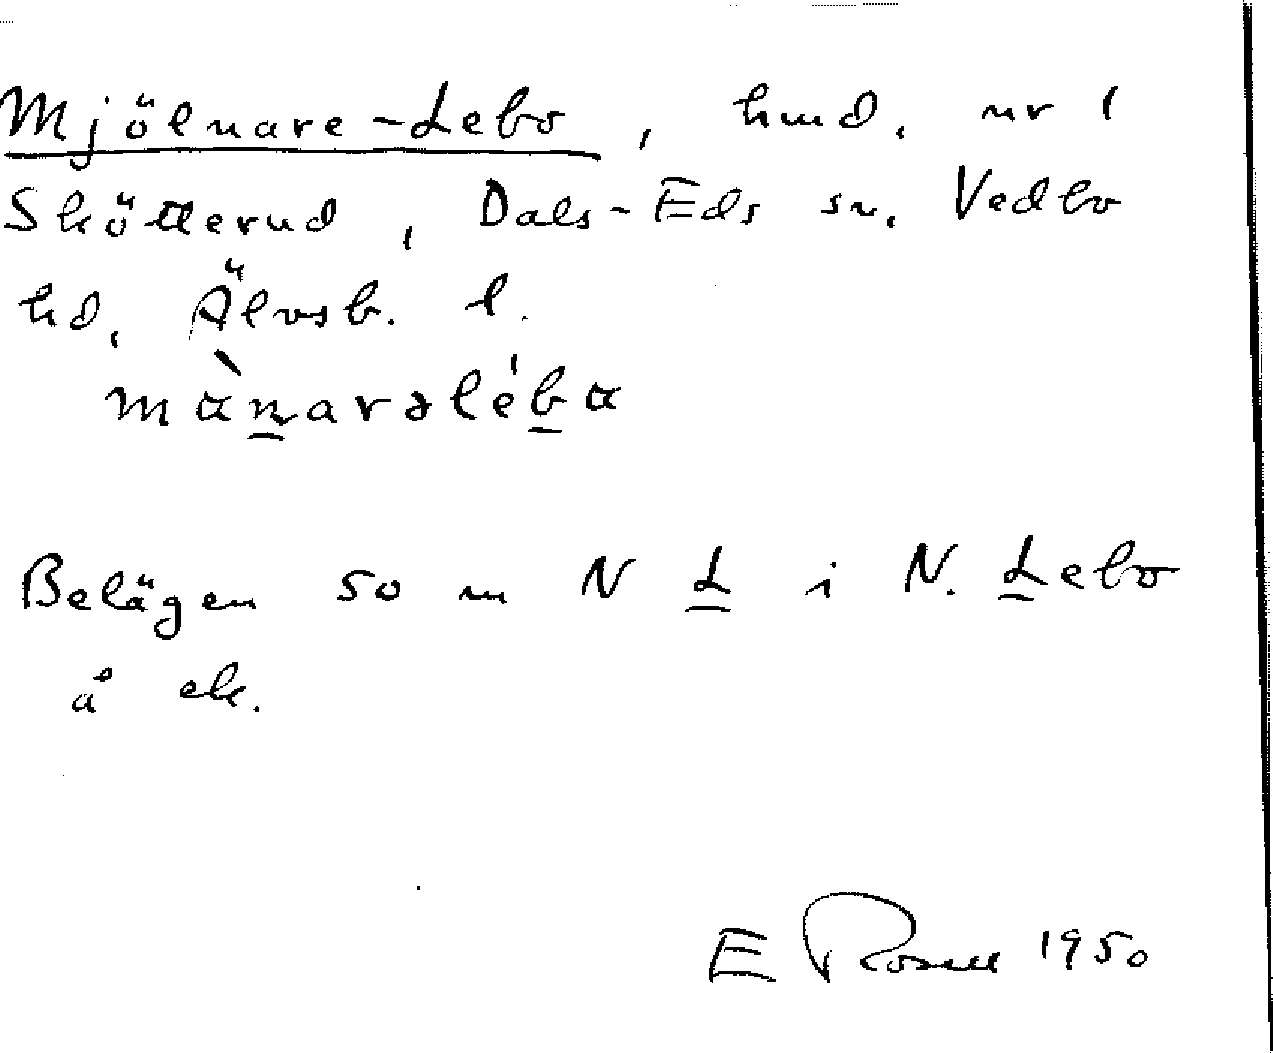 Mjölnare-Lebo, hmd. nr 1
Skötterud, Dals-Eds sn. Vedbo
hd, Älvsb. l.
mànarəléba
Belägen 50 m N L i N. Lebo
å ek.
E Rosell 1950